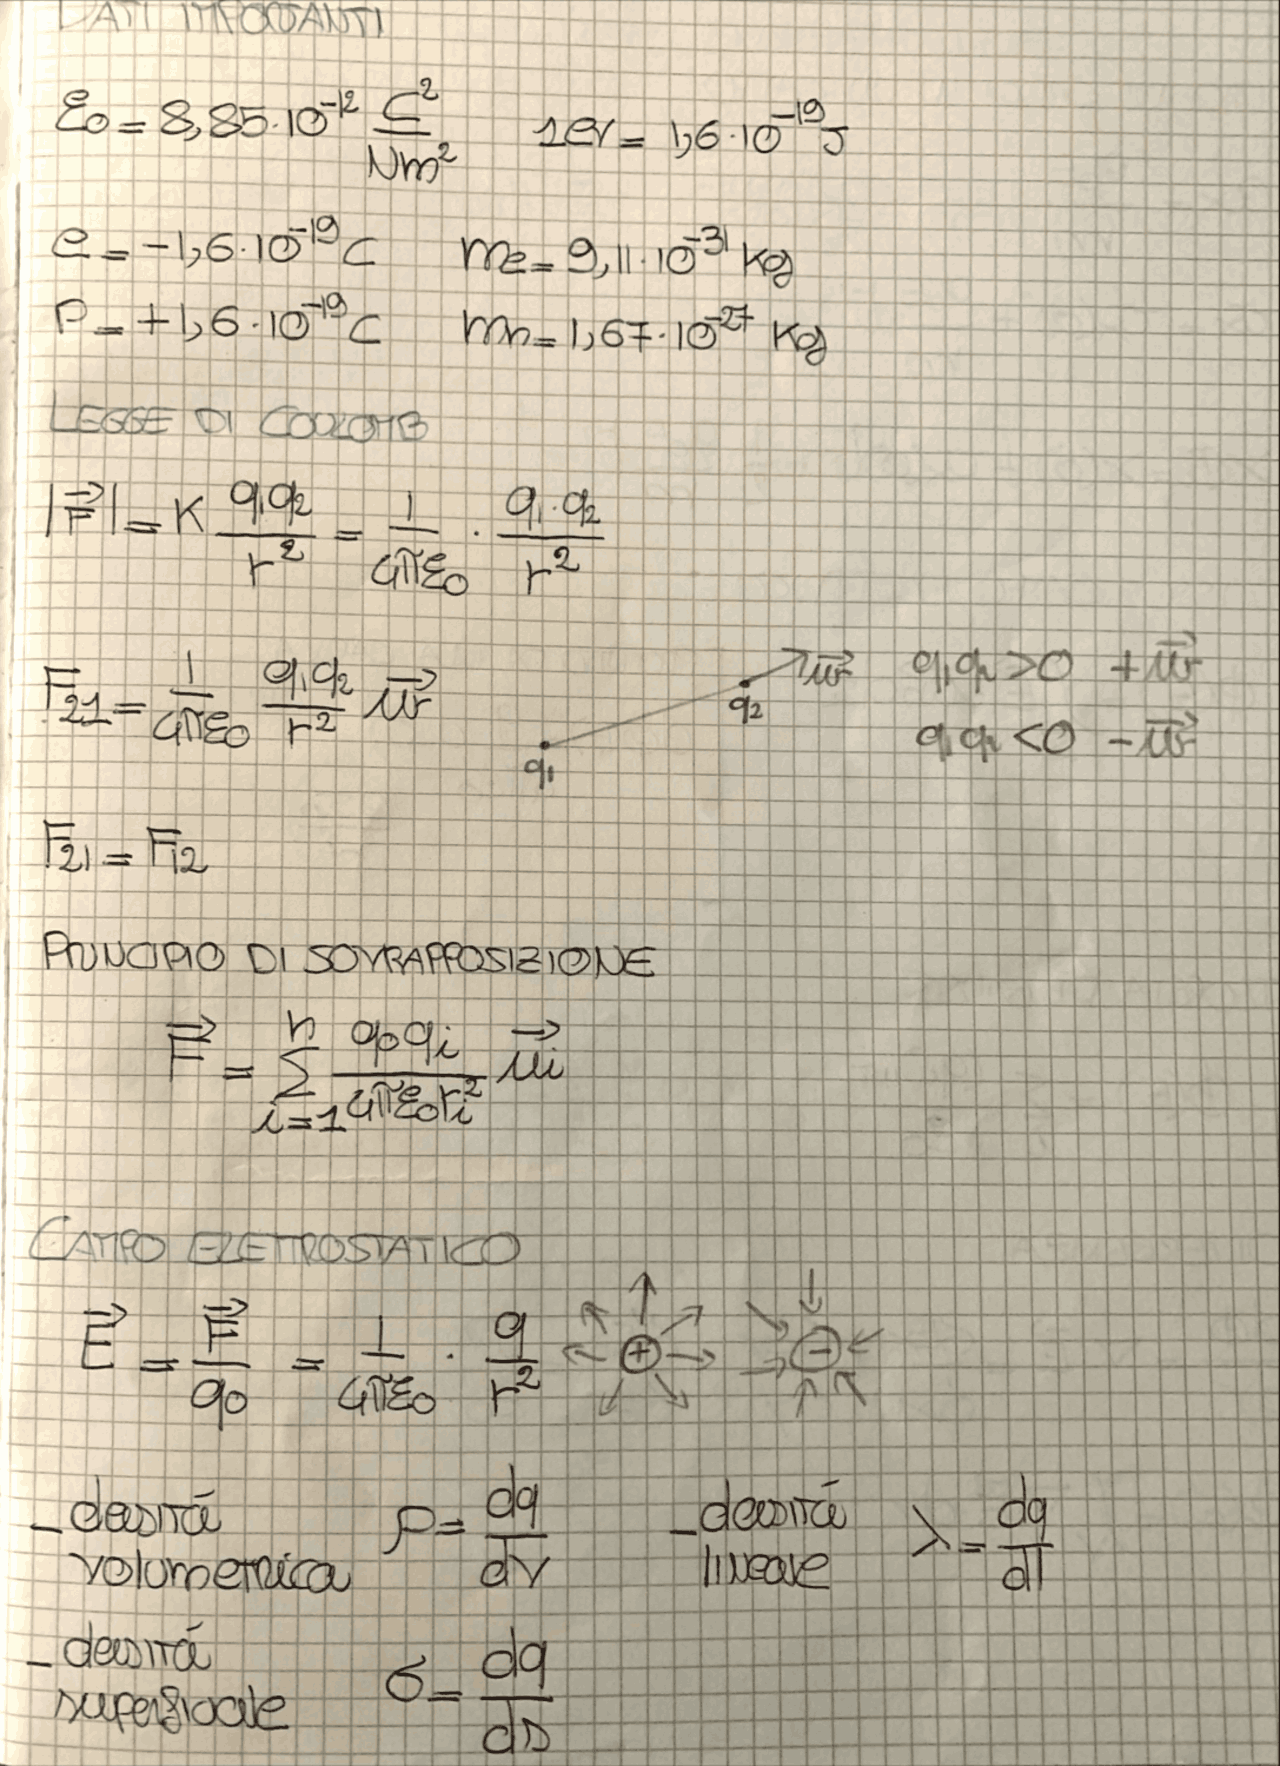 DATI IMPORTANTI
ε0 = 8,85·10^-12 C^2/Nm^2    1eV = 1,6·10^-19 J
e = -1,6·10^-19 C    me = 9,11·10^-31 kg
P = +1,6·10^-19 C    mn = 1,67·10^-27 Kg
LEGGE DI COULOMB
|F⃗| = K q1q2/r^2 = 1/4πε0 · q1·q2/r^2
F21 = 1/4πε0 q1q2/r^2 u⃗r    q1 q2 u⃗r    q1q2 >0 +u⃗r
q1q2 <0 -u⃗r
F21 = F12
PRINCIPIO DI SOVRAPPOSIZIONE
F⃗ = Σ i=1 n q0qi/4πε0ri^2 u⃗i
CAMPO ELETTROSTATICO
E⃗ = F⃗/q0 = 1/4πε0 · q/r^2    +    -
- densitá volumetrica    ρ = dq/dV    - densitá lineare    λ = dq/dl
- densitá superficiale    σ = dq/ds